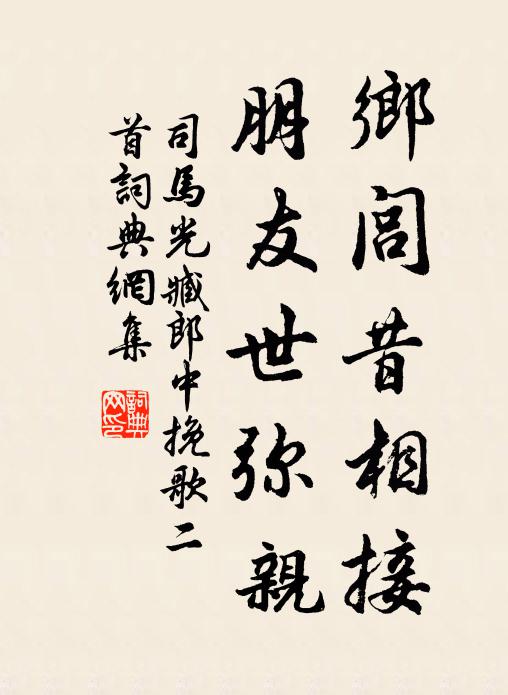 鄉閭昔相接
朋友世弥親
司馬光臧郎中挽歌二
首詞典網集
詞典
网印